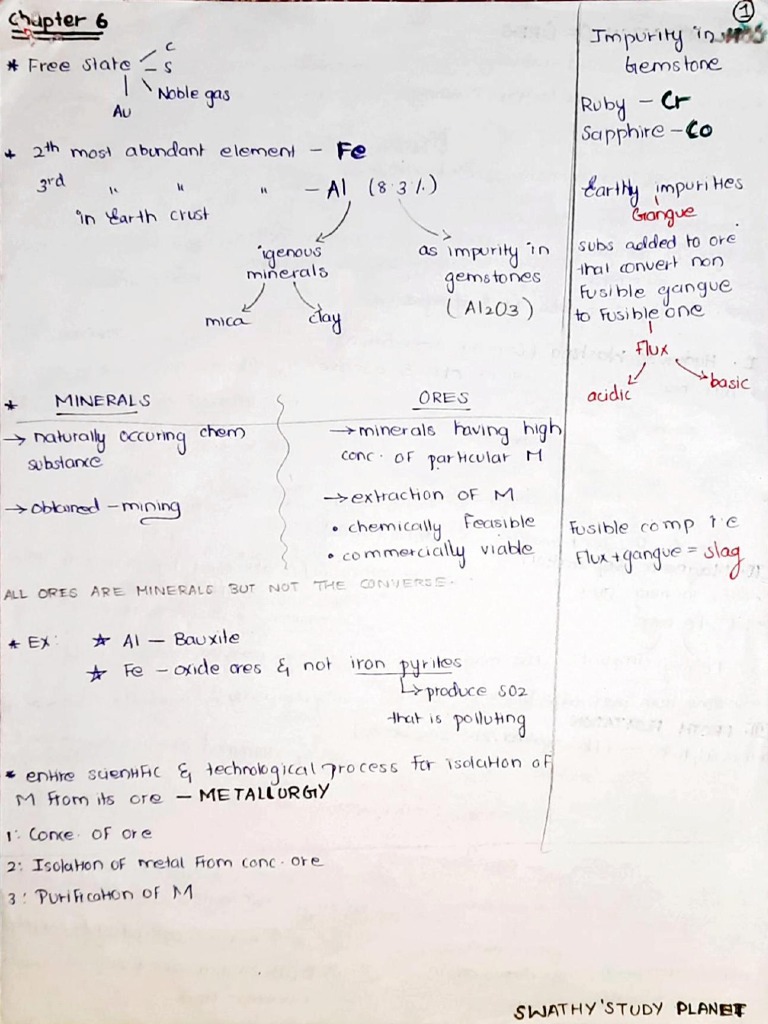 Chapter 6
* Free state
C
S
Noble gas
Au
* 2th most abundant element - Fe
3rd " " " - Al (8.3%)
in Earth crust
igenous
minerals
mica
clay
as impurity in
gemstones
(Al2O3)
* MINERALS
→ naturally occuring chem
substance
→ obtained - mining
ORES
→ minerals having high
conc. of particular M
→ extraction of M
• chemically feasible
• commercially viable
ALL ORES ARE MINERALS BUT NOT THE CONVERSE.
* Ex: ☆ Al - Bauxite
☆ Fe - oxide ores & not iron pyrites
↳ produce SO2
that is polluting
* entire scientific & technological process for isolation of
M from its ore - METALLURGY
1: Conce. of ore
2: Isolation of metal from conc. ore
3: Purification of M
1
Impurity in
Gemstone
Ruby - Cr
Sapphire - Co
Earthy impurities
Gangue
subs added to ore
that convert non
fusible gangue
to fusible one
flux
acidic
basic
Fusible comp i.e
Flux + gangue = slag
SWATHY'STUDY PLANET